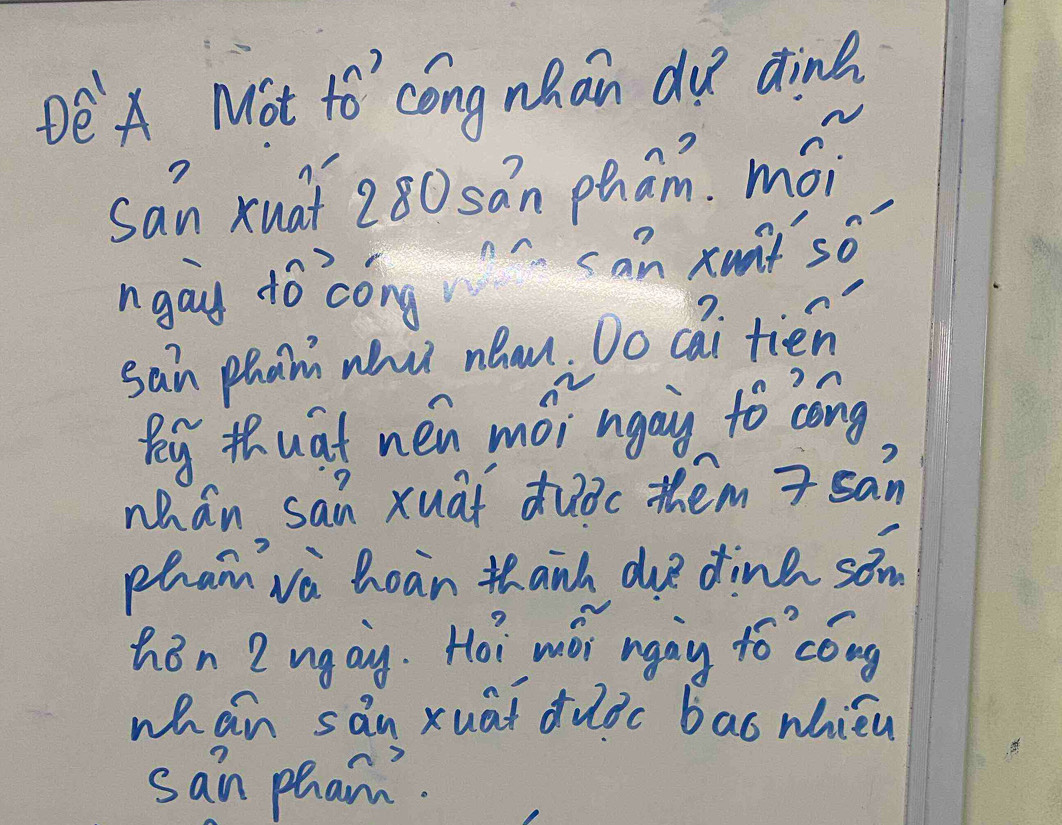 Đề A Một tổ công nhân dự định
sản xuất 280 sản phẩm. mỗi
ngày tổ công nhân sản xuất số
sản phẩm như nhau. Do cải tiến
kỹ thuật nên mỗi ngày tổ công
nhân sản xuất được thêm 7 sản
phẩm và hoàn thành dự định sớm
hơn 2 ngày. Hỏi mỗi ngày tổ công
nhân sản xuất được bao nhiêu
sản phẩm.